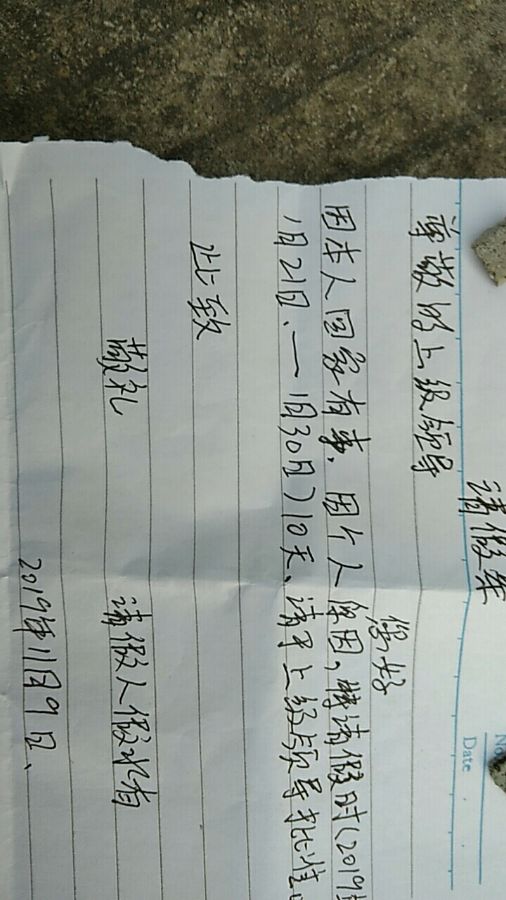 请假条
No
Date
尊敬的上级领导
您好
因本人回家有事，因个人原因，特请假时（2019年
1月21日、一1月30日）10天、请予上级领导批准。
此致
敬礼
请假人
2019年11月9日、